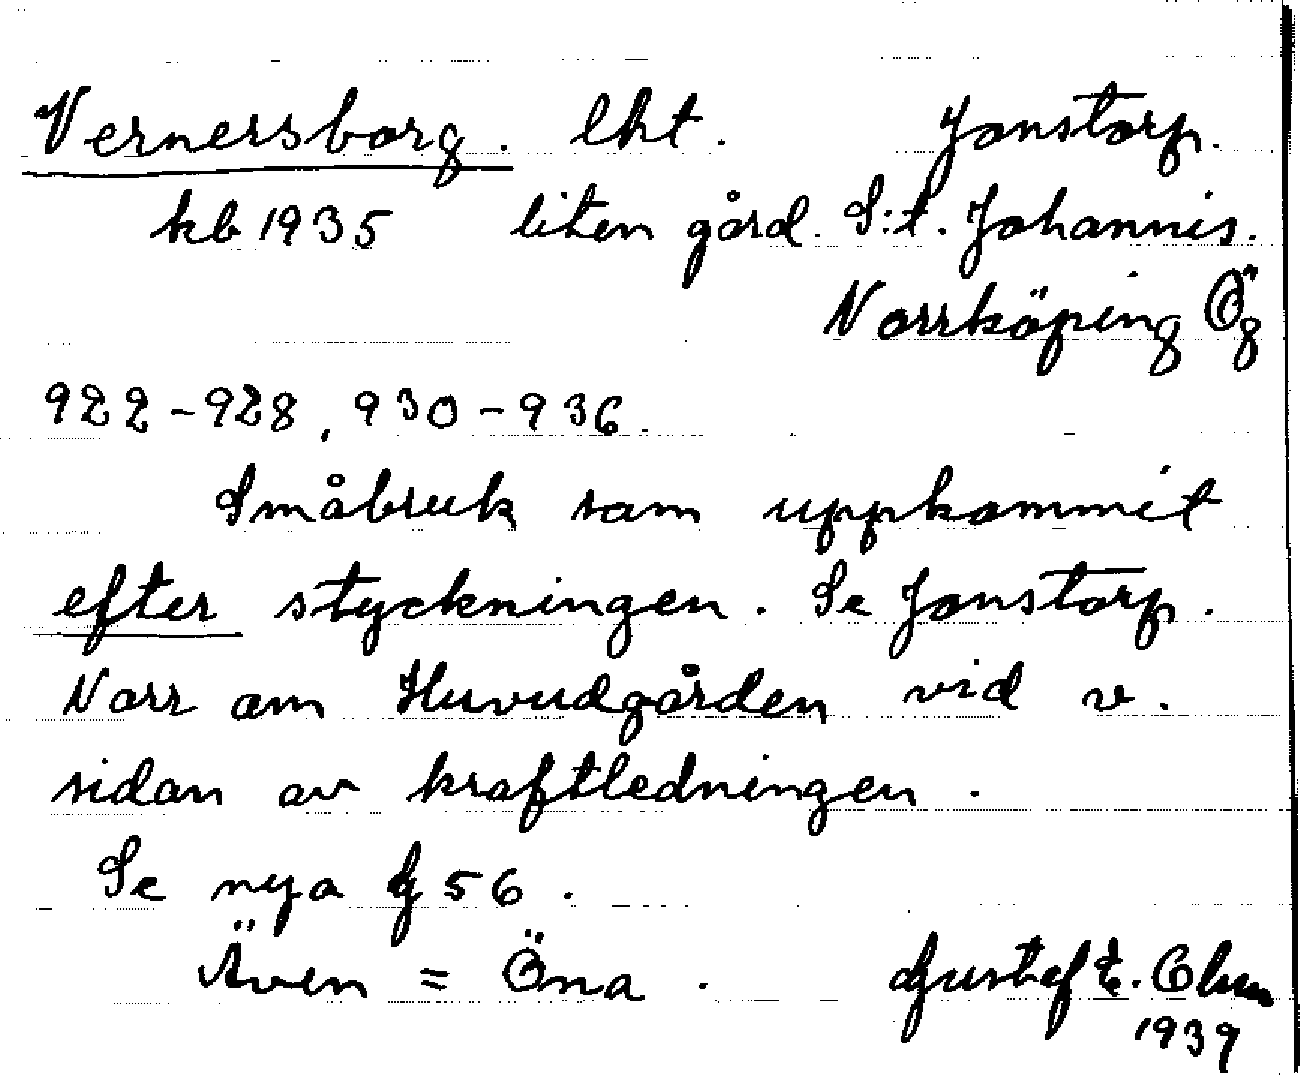 Vernersborg. lht. Jonstorp.
kb 1935 liten gård. S:t. Johannis.
Norrköping Ög
922-928, 930-936.
Småbruk som uppkommit
efter styckningen. Se Jonstorp.
Norr om Huvudgården vid v.
sidan av kraftledningen.
Se nya g 56.
Även = Öna. Gustaf E. Olsen
1939